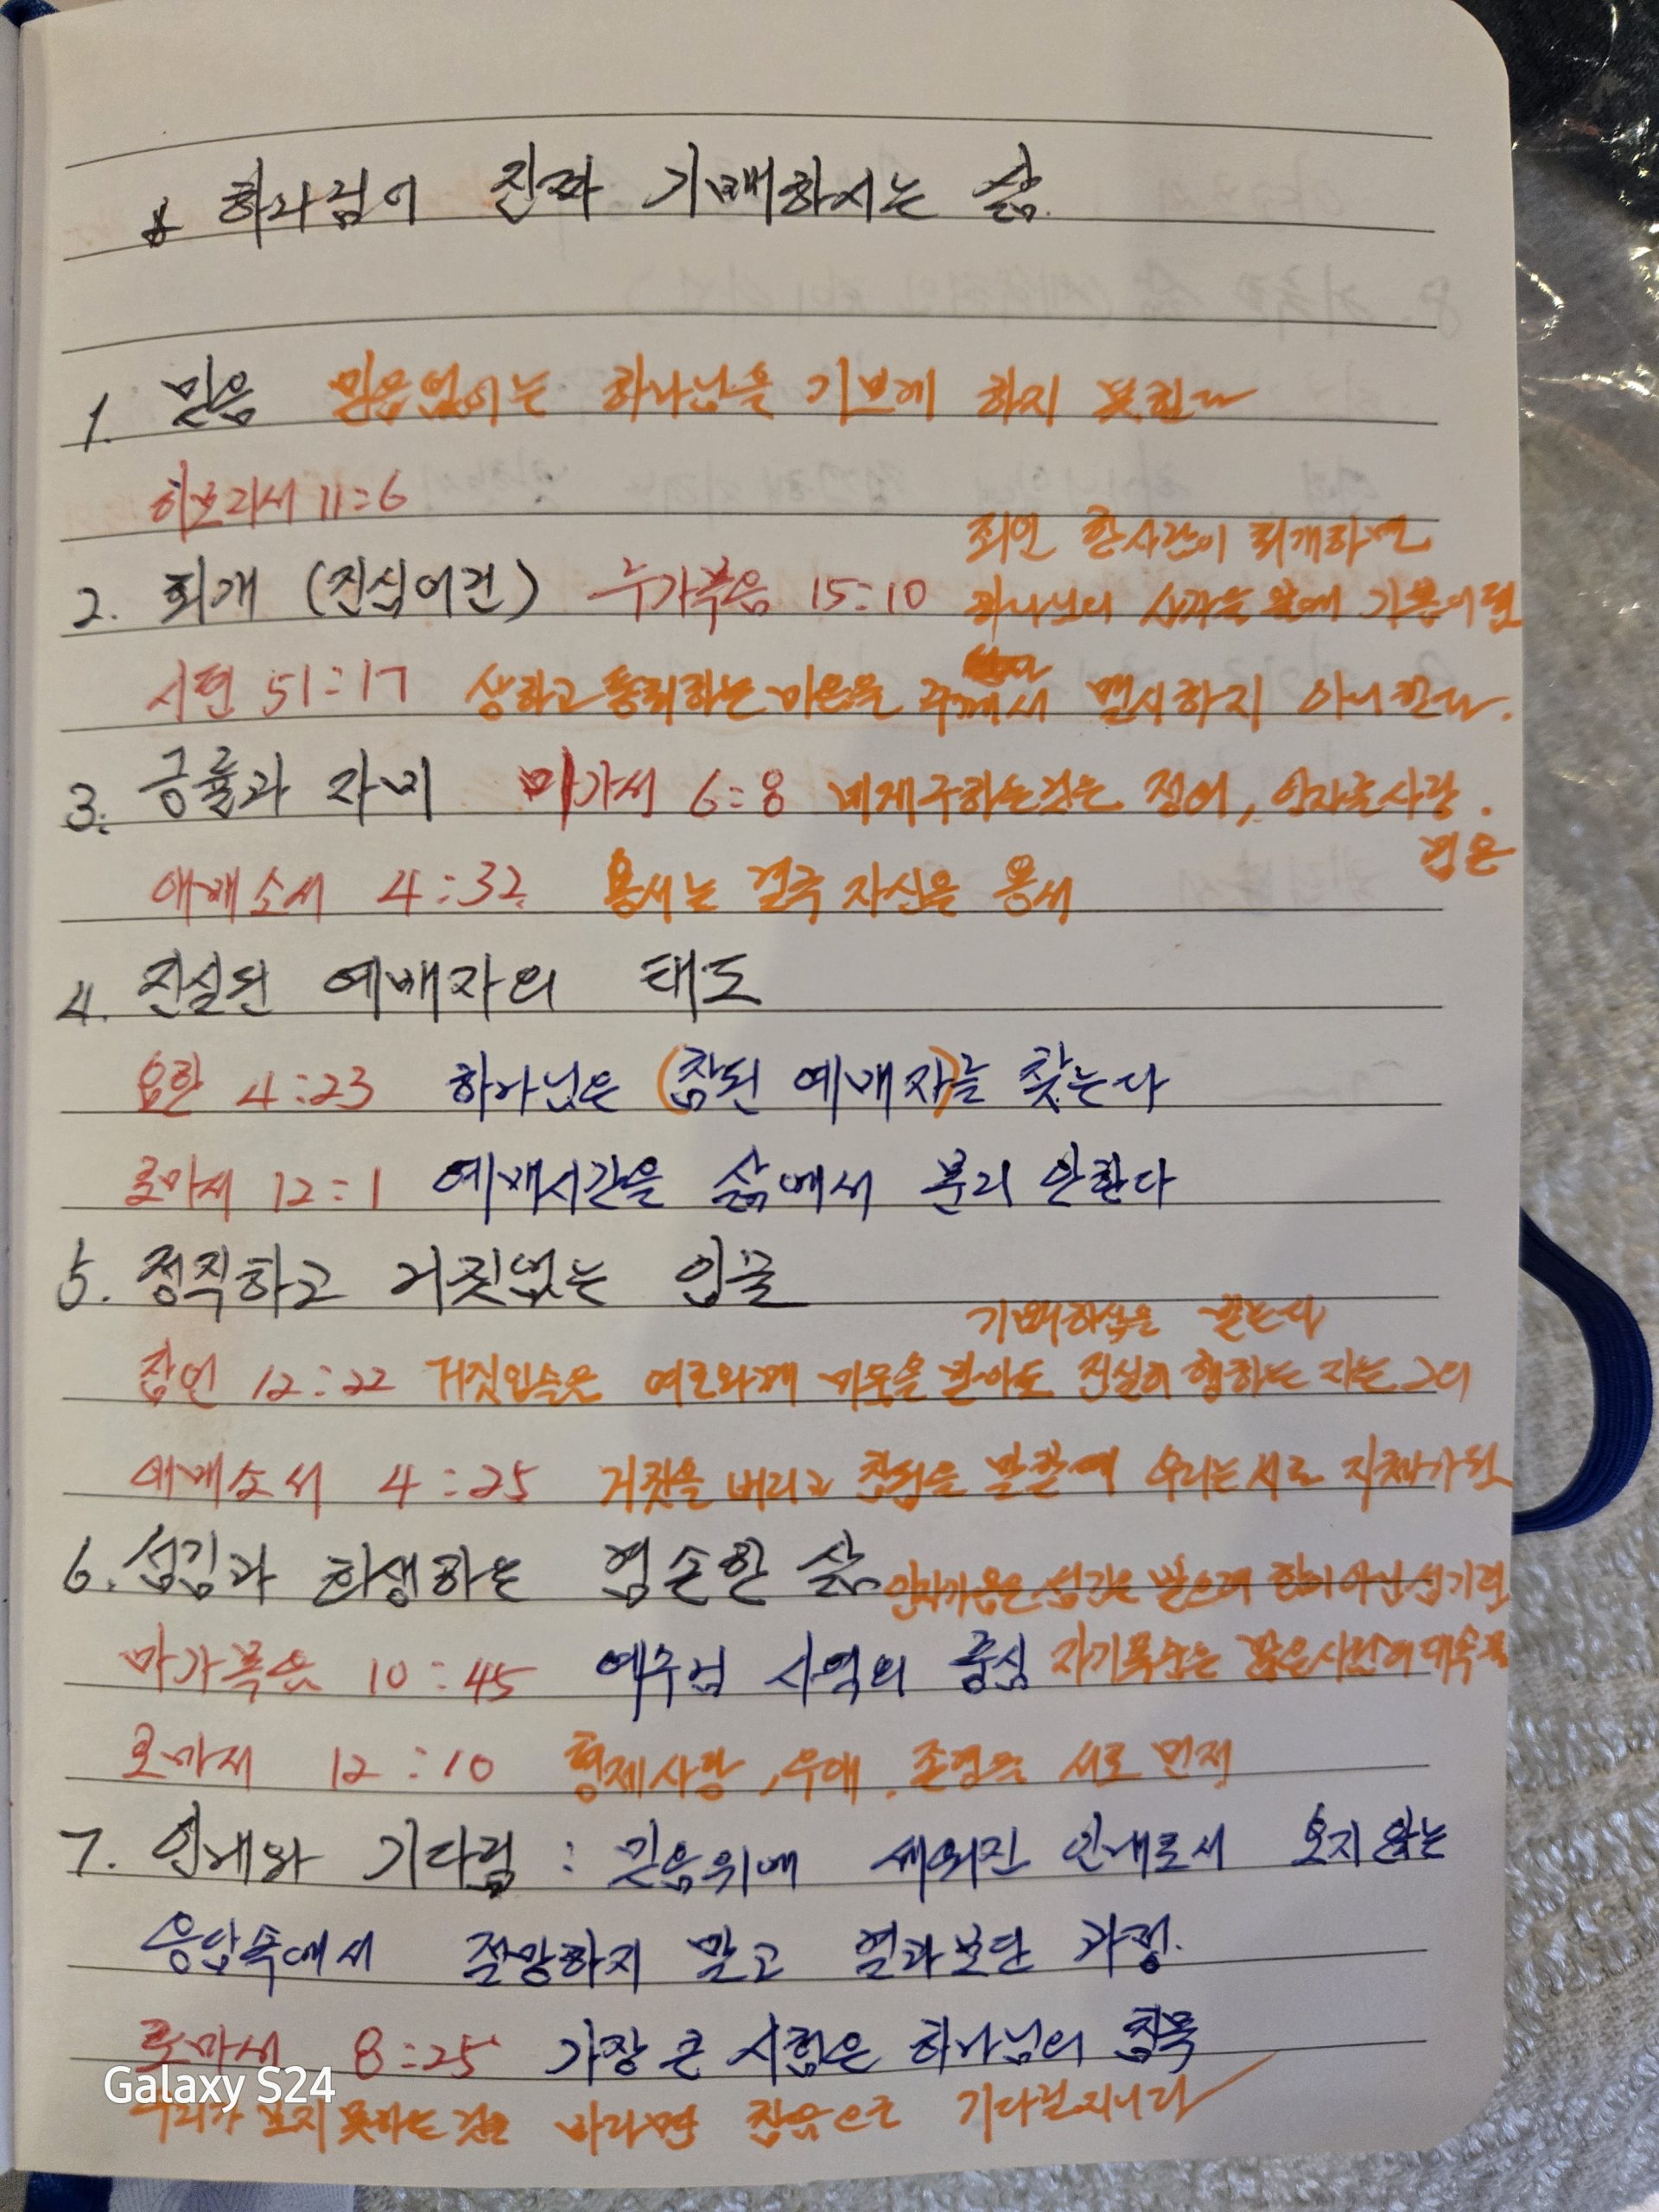 * 하나님이 진짜 기뻐하시는 삶.
1. 믿음 믿음없이는 하나님을 기쁘게 하지 못한다
히브리서 11:6
죄인 한사람이 회개하면
2. 회개 (진심어린) 누가복음 15:10 하나님의 사자들 앞에 기쁨이 된
시편 51:17 상하고 통회하는 마음을 주께서 멸시하지 아니한다.
3. 긍휼과 자비 미가서 6:8 네게 구하는것은 정의, 인자를 사랑.
겸손
에베소서 4:32 용서는 결국 자신을 용서
4. 진실된 예배자의 태도
요한 4:23 하나님은 (참된 예배자)를 찾는다
로마서 12:1 예배시간을 삶에서 분리 안한다
5. 정직하고 거짓없는 입술
기뻐하심을 받는다
잠언 12:22 거짓입술은 여호와께 미움을 받아도 진실히 행하는 자는 그의
에베소서 4:25 거짓을 버리고 참됨을 말할때 우리는 서로 지체가 된
6. 섬김과 희생하는 겸손한 삶 인자가 온은 섬김을 받으려 함이 아닌 섬기려
마가복음 10:45 예수님 사역의 중심 자기목숨은 많은사람의 대속물
로마서 12:10 형제사랑, 우애, 존경은 서로 먼저
7. 인내와 기다림 : 믿음위에 세워진 인내로서 오지않는
응답속에서 절망하지 말고 결과보단 과정.
로마서 8:25 가장 큰 시험은 하나님의 침묵
Galaxy S24
우리가 보지 못하는 것을 바라면 참음으로 기다릴지니라